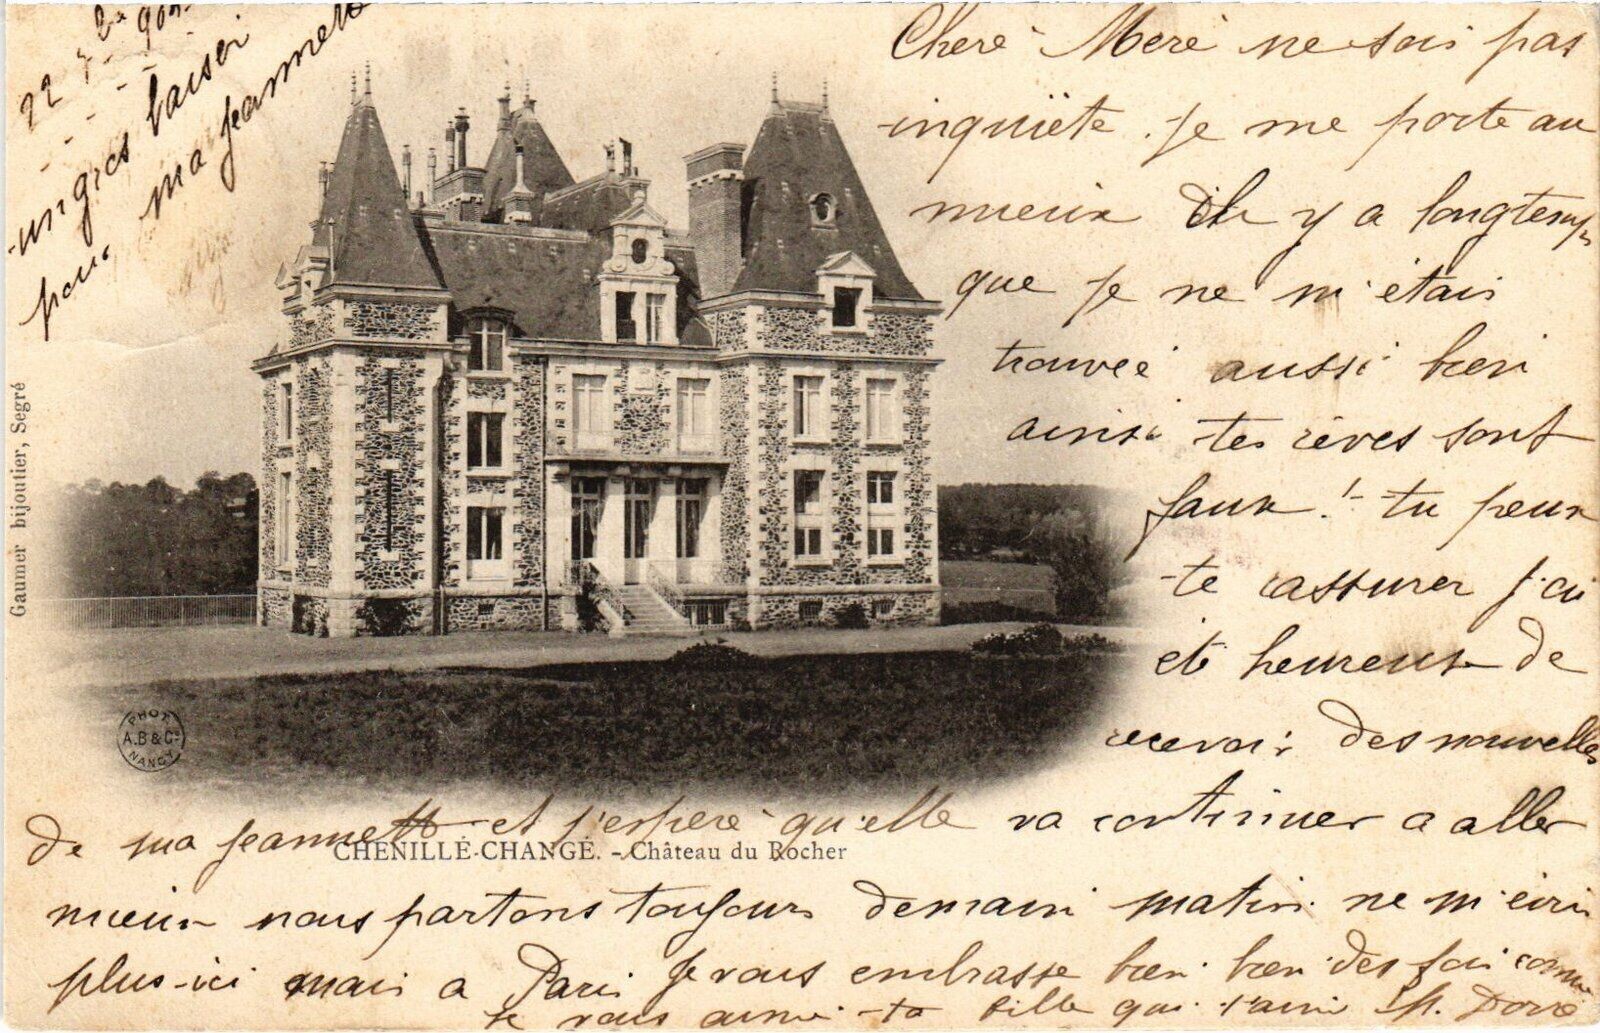 22 7bre 1902
un gros baiser
pour ma Jeannette
Cheré Meré ne sois pas
inquiëte. Je me porte au
mieux Il y a longtemps
que je ne m'étais
trouveé aussi bien
ainsi tes rèves sont
faux! tu peux
te assurer j'ai
été heureux de
recevoir des nouvelles
de ma Jeannette et j'esperé qu'elle va continuer a aller
CHENILLÉ-CHANGÉ. - Château du Rocher
mieux nous partons toujours demain matin. ne m'écris
plus-ici mais a Paris Je vous embrasse bien bien des fois comme
je vous aime ta fille qui t'aime
Gaumer bijoutier, Segré
PHOT.
A.B & Cie
NANCY